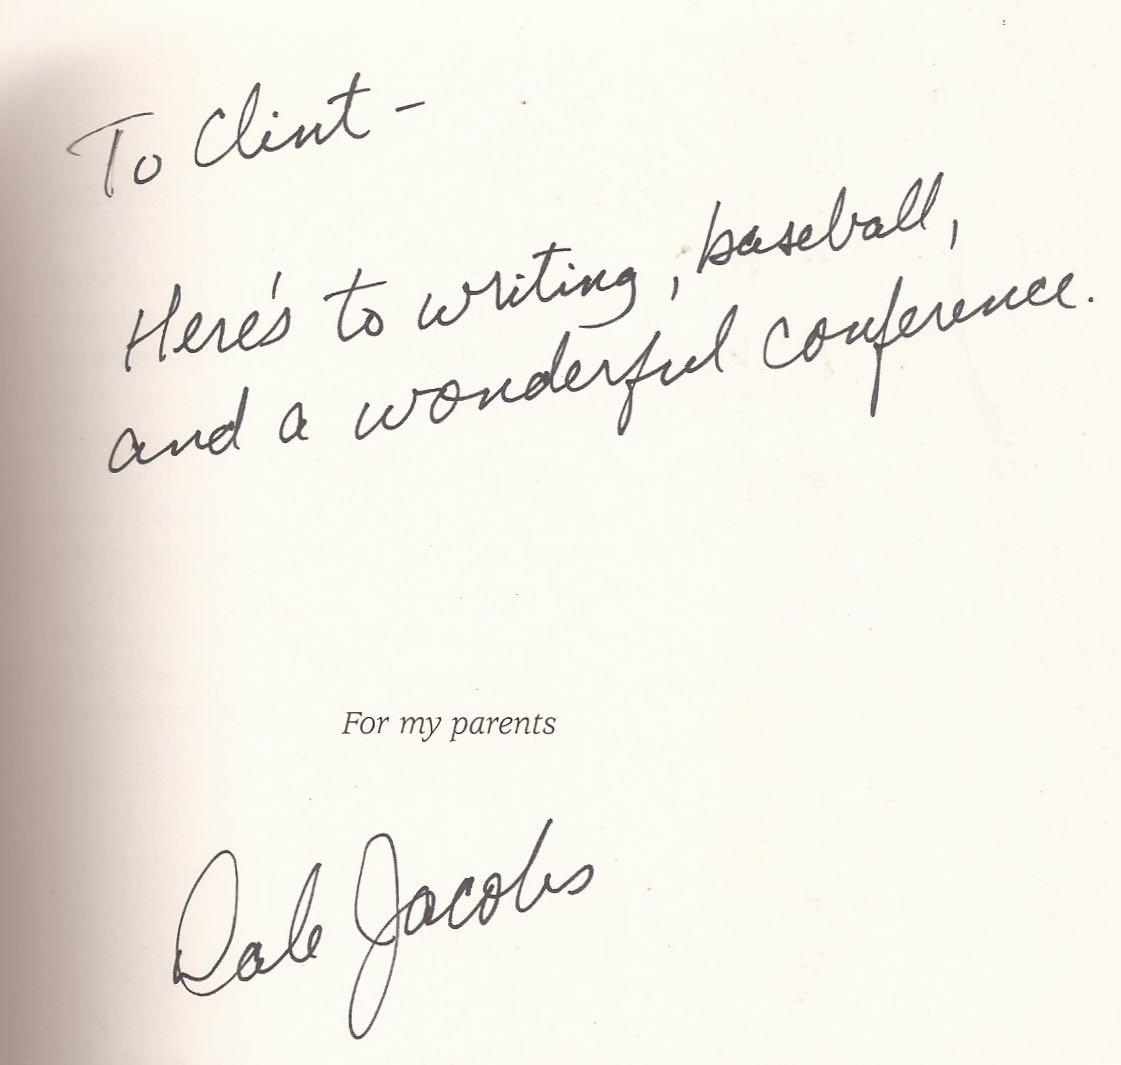 To Clint -
Here's to writing, baseball,
and a wonderful conference.
For my parents
Dale Jacobs